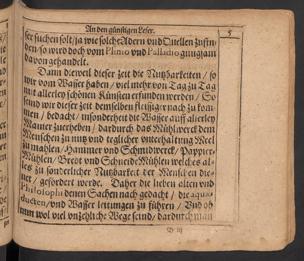 An den günstigen Leser. 5
ser suchen solt/ja wie solche Adern vnd Quellen zufin-
den/so wird doch vom Plinio vnd Palladio gnugsam
davon gehandelt.
Dann dieweil dieser zeit die Nutzbarkeiten / so
wir vom Wasser haben / viel mehr von Tag zu Tag
mit allerley schönen Künsten erfunden werden / So
seind wir dieser zeit demselben fleissiger nach zu kom-
men / bedacht / insonderheit die Wasser auff allerley
Manier zuerheben / dardurch das Mühlwerck dem
Menschen zu nutz vnd teglicher vnterhaltung Meel
zu mahlen / Hammer vnd Schmidwerck / Pappier-
Mühlen / Breet vnd Schneide Mühlen welches al-
les zu sonderlicher Nutzbarkeit der Menschen die-
net / gefordert werde. Daher die lieben alten vnd
Philosophi denen Sachen nach gedacht / die aquæ-
ductus / vnd Wasser leitungen zu führen / Vnd ob
wol viel vnzehliche Wege seind / dardurch man
B iij